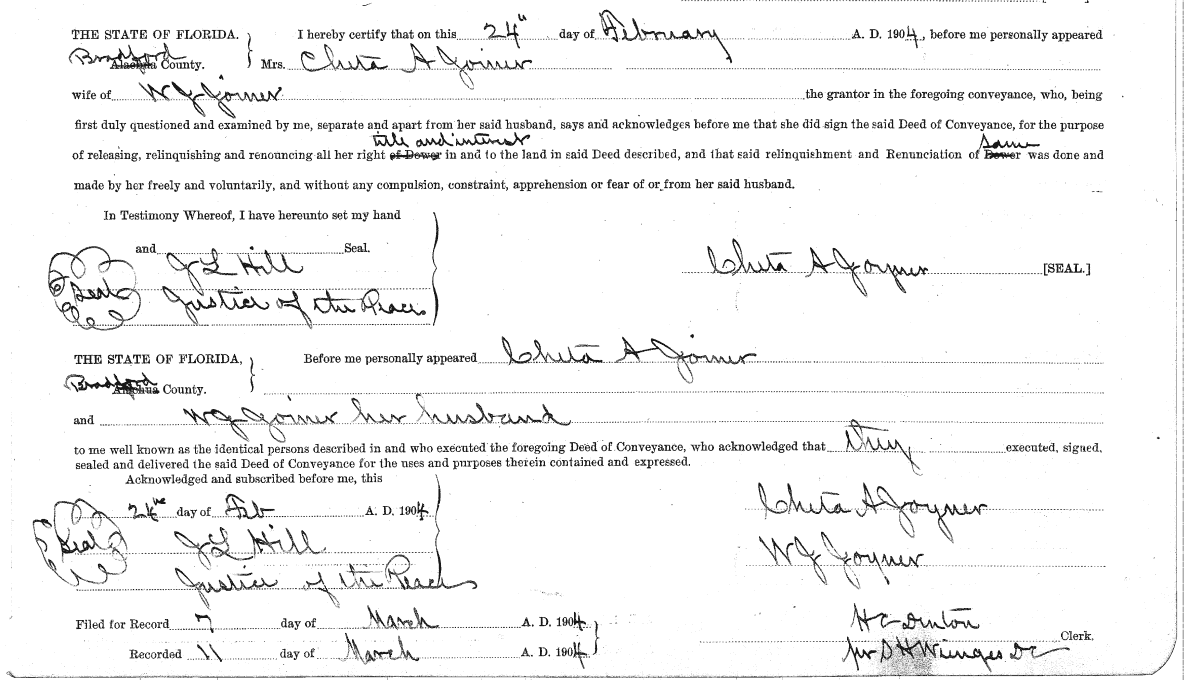 THE STATE OF FLORIDA. I hereby certify that on this 24" day of February A. D. 1904, before me personally appeared
Bradford
Alachua County. Mrs. Cheta A Joiner
wife of W J Joiner the grantor in the foregoing conveyance, who, being
first duly questioned and examined by me, separate and apart from her said husband, says and acknowledges before me that she did sign the said Deed of Conveyance, for the purpose
title and interest same
of releasing, relinquishing and renouncing all her right of Dower in and to the land in said Deed described, and that said relinquishment and Renunciation of Dower was done and
made by her freely and voluntarily, and without any compulsion, constraint, apprehension or fear of or from her said husband.
In Testimony Whereof, I have hereunto set my hand
and Seal.
J L Hill
Cheta A Joyner [SEAL.]
Seal
Justice of the Peace
THE STATE OF FLORIDA, Before me personally appeared Cheta A Joiner
Bradford
Alachua County.
and W J Joiner her husband
to me well known as the identical persons described in and who executed the foregoing Deed of Conveyance, who acknowledged that they executed, signed,
sealed and delivered the said Deed of Conveyance for the uses and purposes therein contained and expressed.
Acknowledged and subscribed before me, this
24th day of Feb A. D. 1904
Cheta A Joyner
Seal J L Hill
W J Joyner
Justice of the Peace
Filed for Record 7 day of March A. D. 1904
H C Denton Clerk.
Recorded 11 day of March A. D. 1904
per D H Wienges DC